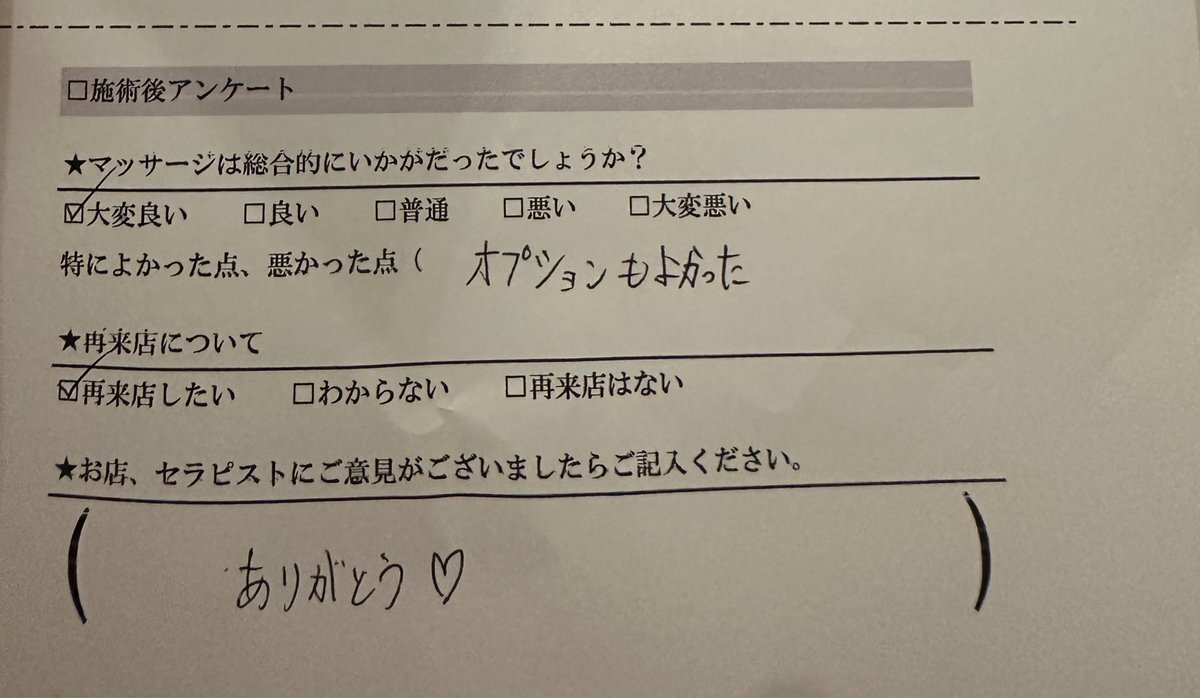 □施術後アンケート
★マッサージは総合的にいかがだったでしょうか？
☑大変良い □良い □普通 □悪い □大変悪い
特によかった点、悪かった点（ オプションもよかった
★再来店について
☑再来店したい □わからない □再来店はない
★お店、セラピストにご意見がございましたらご記入ください。
（ ありがとう♡ ）